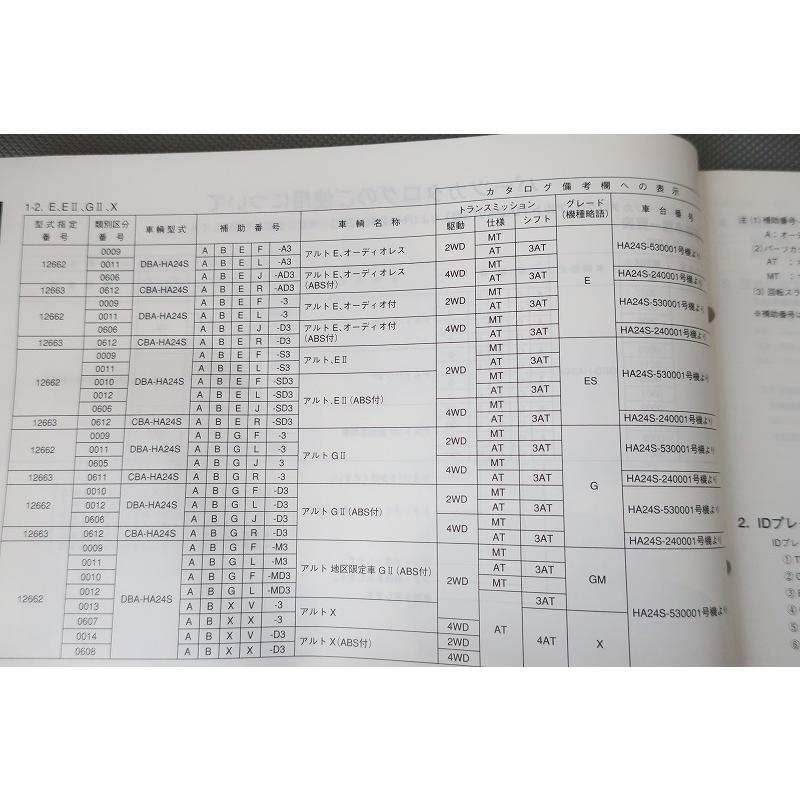 カタログ備考欄への表示
1-2. E、EⅡ、GⅡ、X
型式指定番号 類別区分番号 車輌型式 補助番号 車輌名称 トランスミッション グレード(機種略語) 車台番号
駆動 仕様 シフト
12662 0009 DBA-HA24S A B E F -A3 アルトE、オーディオレス 2WD MT E HA24S-530001号機より
0011 A B E L -A3 AT 3AT
0606 A B E J -AD3 アルトE、オーディオレス(ABS付) 4WD MT
12663 0612 CBA-HA24S A B E R -AD3 AT 3AT HA24S-240001号機より
12662 0009 DBA-HA24S A B E F -3 アルトE、オーディオ付 2WD MT HA24S-530001号機より
0011 A B E L -3 AT 3AT
0606 A B E J -D3 アルトE、オーディオ付(ABS付) 4WD MT
12663 0612 CBA-HA24S A B E R -D3 AT 3AT HA24S-240001号機より
12662 0009 DBA-HA24S A B E F -S3 アルト、EⅡ 2WD MT ES HA24S-530001号機より
0011 A B E L -S3 AT 3AT
0010 A B E F -SD3 アルト、EⅡ(ABS付) MT
0012 A B E L -SD3 AT 3AT
0606 A B E J -SD3 4WD MT
12663 0612 CBA-HA24S A B E R -SD3 AT 3AT HA24S-240001号機より
12662 0009 DBA-HA24S A B G F -3 アルトGⅡ 2WD MT G HA24S-530001号機より
0011 A B G L -3 AT 3AT
0605 A B G J 3 4WD MT
12663 0611 CBA-HA24S A B G R -3 AT 3AT HA24S-240001号機より
12662 0010 DBA-HA24S A B G F -D3 アルトGⅡ(ABS付) 2WD MT HA24S-530001号機より
0012 A B G L -D3 AT 3AT
0606 A B G J -D3 4WD MT
12663 0612 CBA-HA24S A B G R -D3 AT 3AT HA24S-240001号機より
12662 0009 DBA-HA24S A B G F -M3 アルト地区限定車GⅡ(ABS付) 2WD MT GM HA24S-530001号機より
0011 A B G L -M3 AT 3AT
0010 A B G F -MD3 MT
0012 A B G L -MD3 AT 3AT
0013 A B X V -3 アルトX 4AT X
0607 A B X X -3 4WD
0014 A B X V -D3 アルトX(ABS付) 2WD
0608 A B X X -D3 4WD
注(1)補助番号
A:オー
(2)パーツカ
AT :
MT :
(3)回転スラ
※補助番号に
2. IDプレ
IDプレ
①T
②
③
④
⑤
⑥